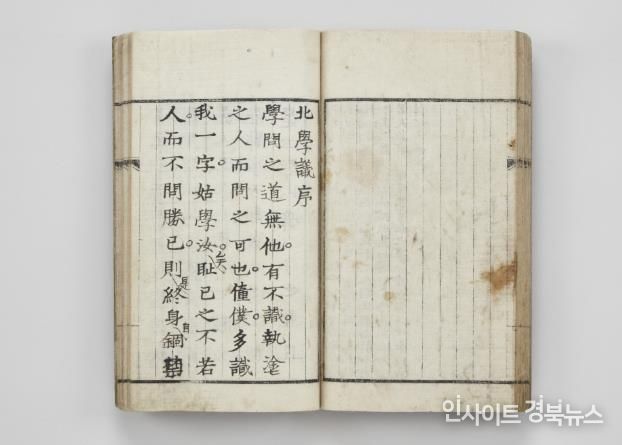 北學議序
學問之道無他。有不識。執塗
之人而問之可也。僮僕。多識
我一字。姑學汝。矣恥己之不若
人。而不問勝己。則是終身自錮
인사이트 경북뉴스